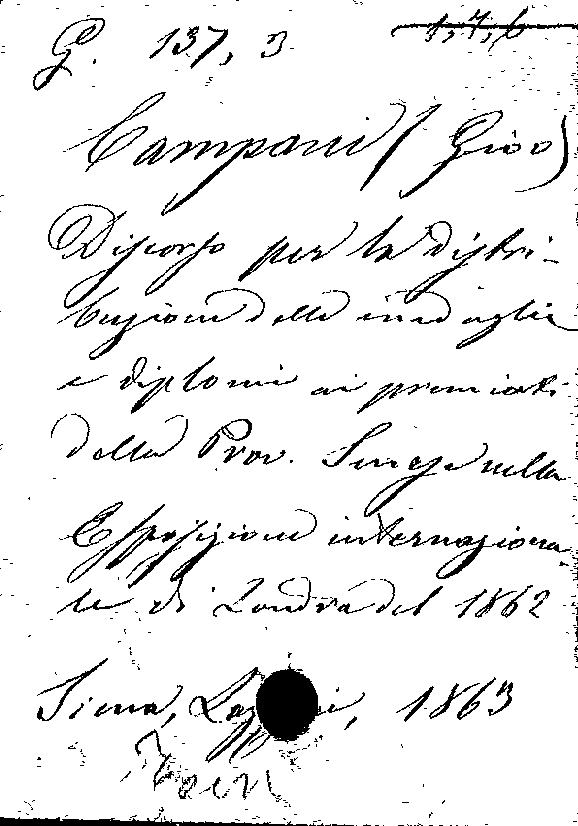 G. 137, 3 1,7,6
Campani (Giov)
Discorso per la distri-
buzione delle medaglie
e diplomi ai premiati
della Prov. Senese nella
Esposizione internaziona-
le di Londra del 1862
Siena, 1863